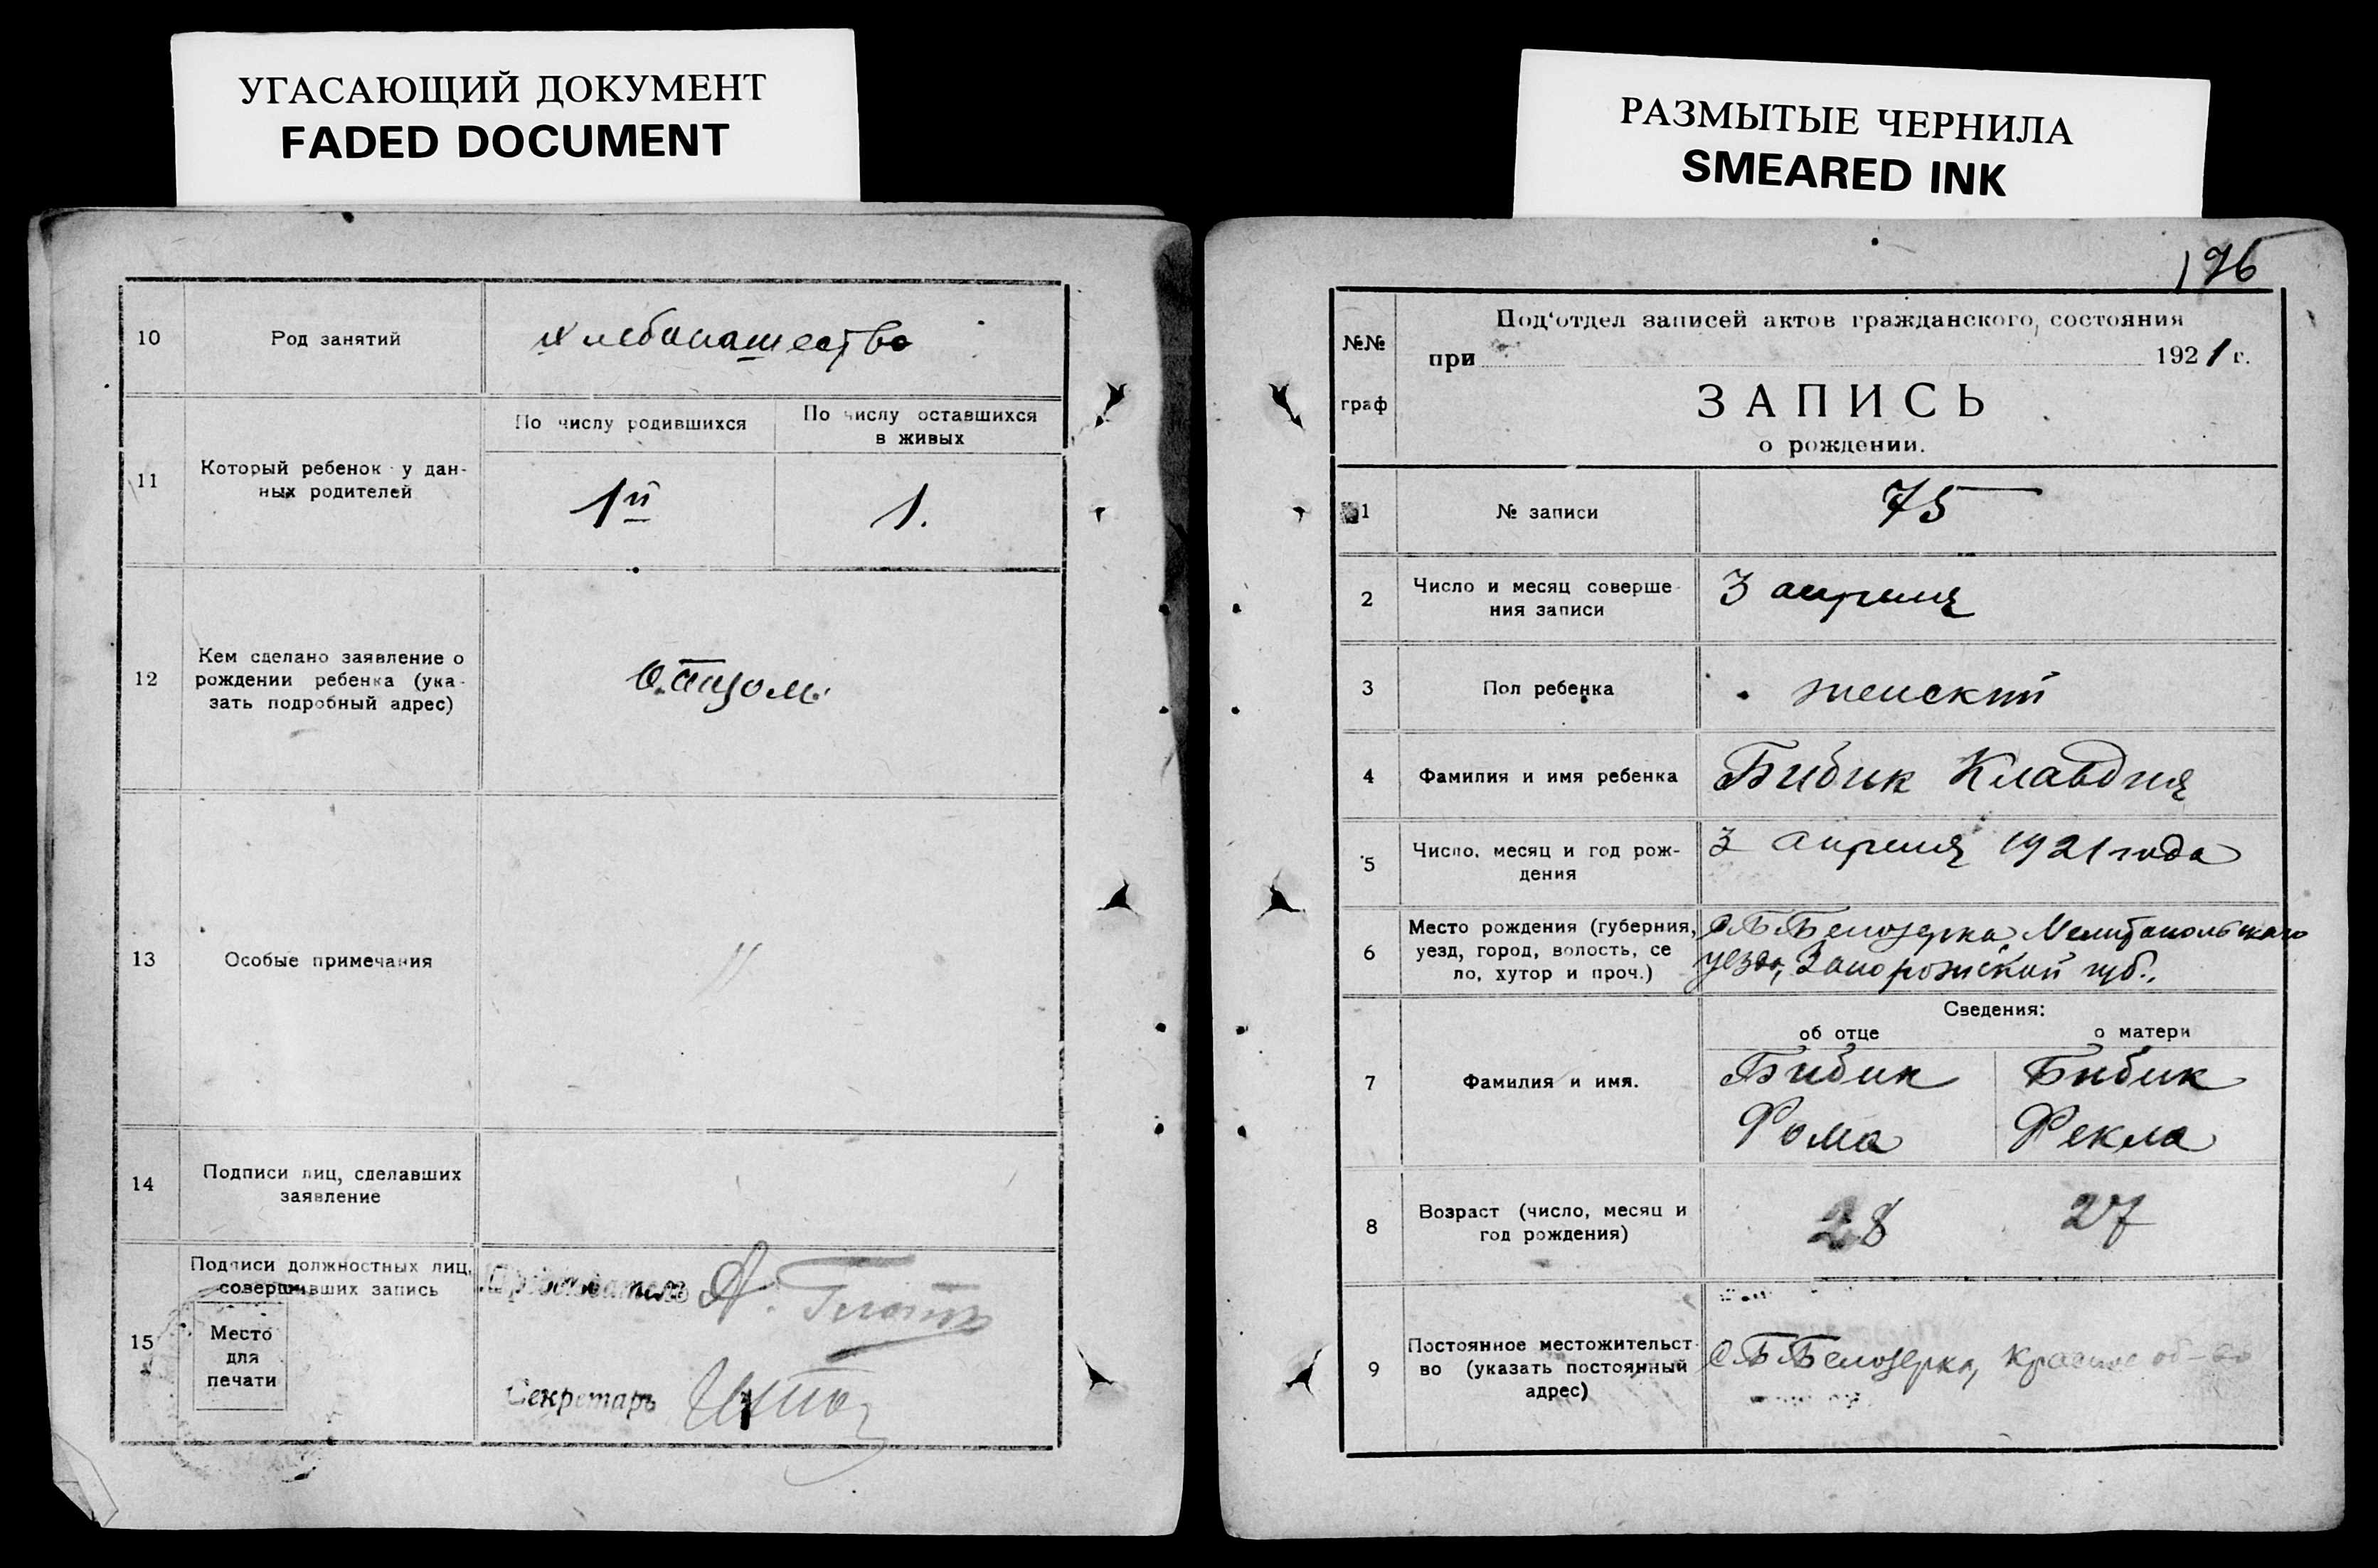 УГАСАЮЩИЙ ДОКУМЕНТ
FADED DOCUMENT
10
Род занятий
Хлебопашество
11
Который ребенок у дан-
ных родителей
По числу родившихся
1й
По числу оставшихся
в живых
1.
12
Кем сделано заявление о
рождении ребенка (ука-
зать подробный адрес)
Отцом.
13
Особые примечания
"
14
Подписи лиц, сделавших
заявление
15
Подписи должностных лиц,
совершивших запись
Место
для
печати
Председатель А.
Секретарь
РАЗМЫТЫЕ ЧЕРНИЛА
SMEARED INK
196
№№
граф
Под'отдел записей актов гражданского состояния
при 1921 г.
ЗАПИСЬ
о рождении.
1
№ записи
75
2
Число и месяц соверше-
ния записи
3 апреля
3
Пол ребенка
женский
4
Фамилия и имя ребенка
Бибик Клавдия
5
Число, месяц и год рож-
дения
3 апреля 1921 года
6
Место рождения (губерния,
уезд, город, волость, се
ло, хутор и проч.)
С. Б Белозерка, Мелитопольского
уезда, Запорожской губ.,
Сведения:
об отце
о матери
7
Фамилия и имя.
Бибик
Фома
Бибик
Фекла
8
Возраст (число, месяц и
год рождения)
28
27
9
Постоянное местожительст-
во (указать постоянный
адрес)
С. Б Белозерка, Красное об-во